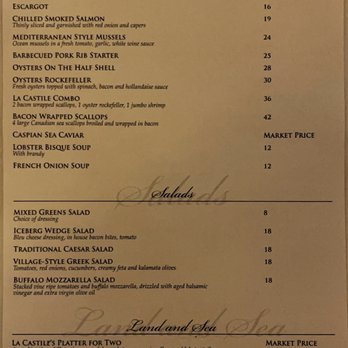 Escargot 16
Chilled Smoked Salmon 19
Thinly sliced and garnished with red onion and capers
Mediterranean Style Mussels 24
Ocean mussels in a fresh tomato, garlic, white wine sauce
Barbecued Pork Rib Starter 25
Oysters On The Half Shell 28
Oysters Rockefeller 30
Fresh oysters topped with spinach, bacon and hollandaise sauce
La Castile Combo 36
2 bacon wrapped scallops, 1 oyster rockefeller, 1 jumbo shrimp
Bacon Wrapped Scallops 42
4 large Canadian sea scallops broiled and wrapped in bacon
Caspian Sea Caviar Market Price
Lobster Bisque Soup 12
With brandy
French Onion Soup 12
Salads
Mixed Greens Salad 8
Choice of dressing
Iceberg Wedge Salad 18
Bleu cheese dressing, in house bacon bites, tomato
Traditional Caesar Salad 18
Village-Style Greek Salad 18
Tomatoes, red onions, cucumbers, creamy feta and kalamata olives
Buffalo Mozzarella Salad 18
Stacked vine ripe tomatoes and buffalo mozzarella, drizzled with aged balsamic
vinegar and extra virgin olive oil
Land and Sea
La Castile's Platter for Two Market Price